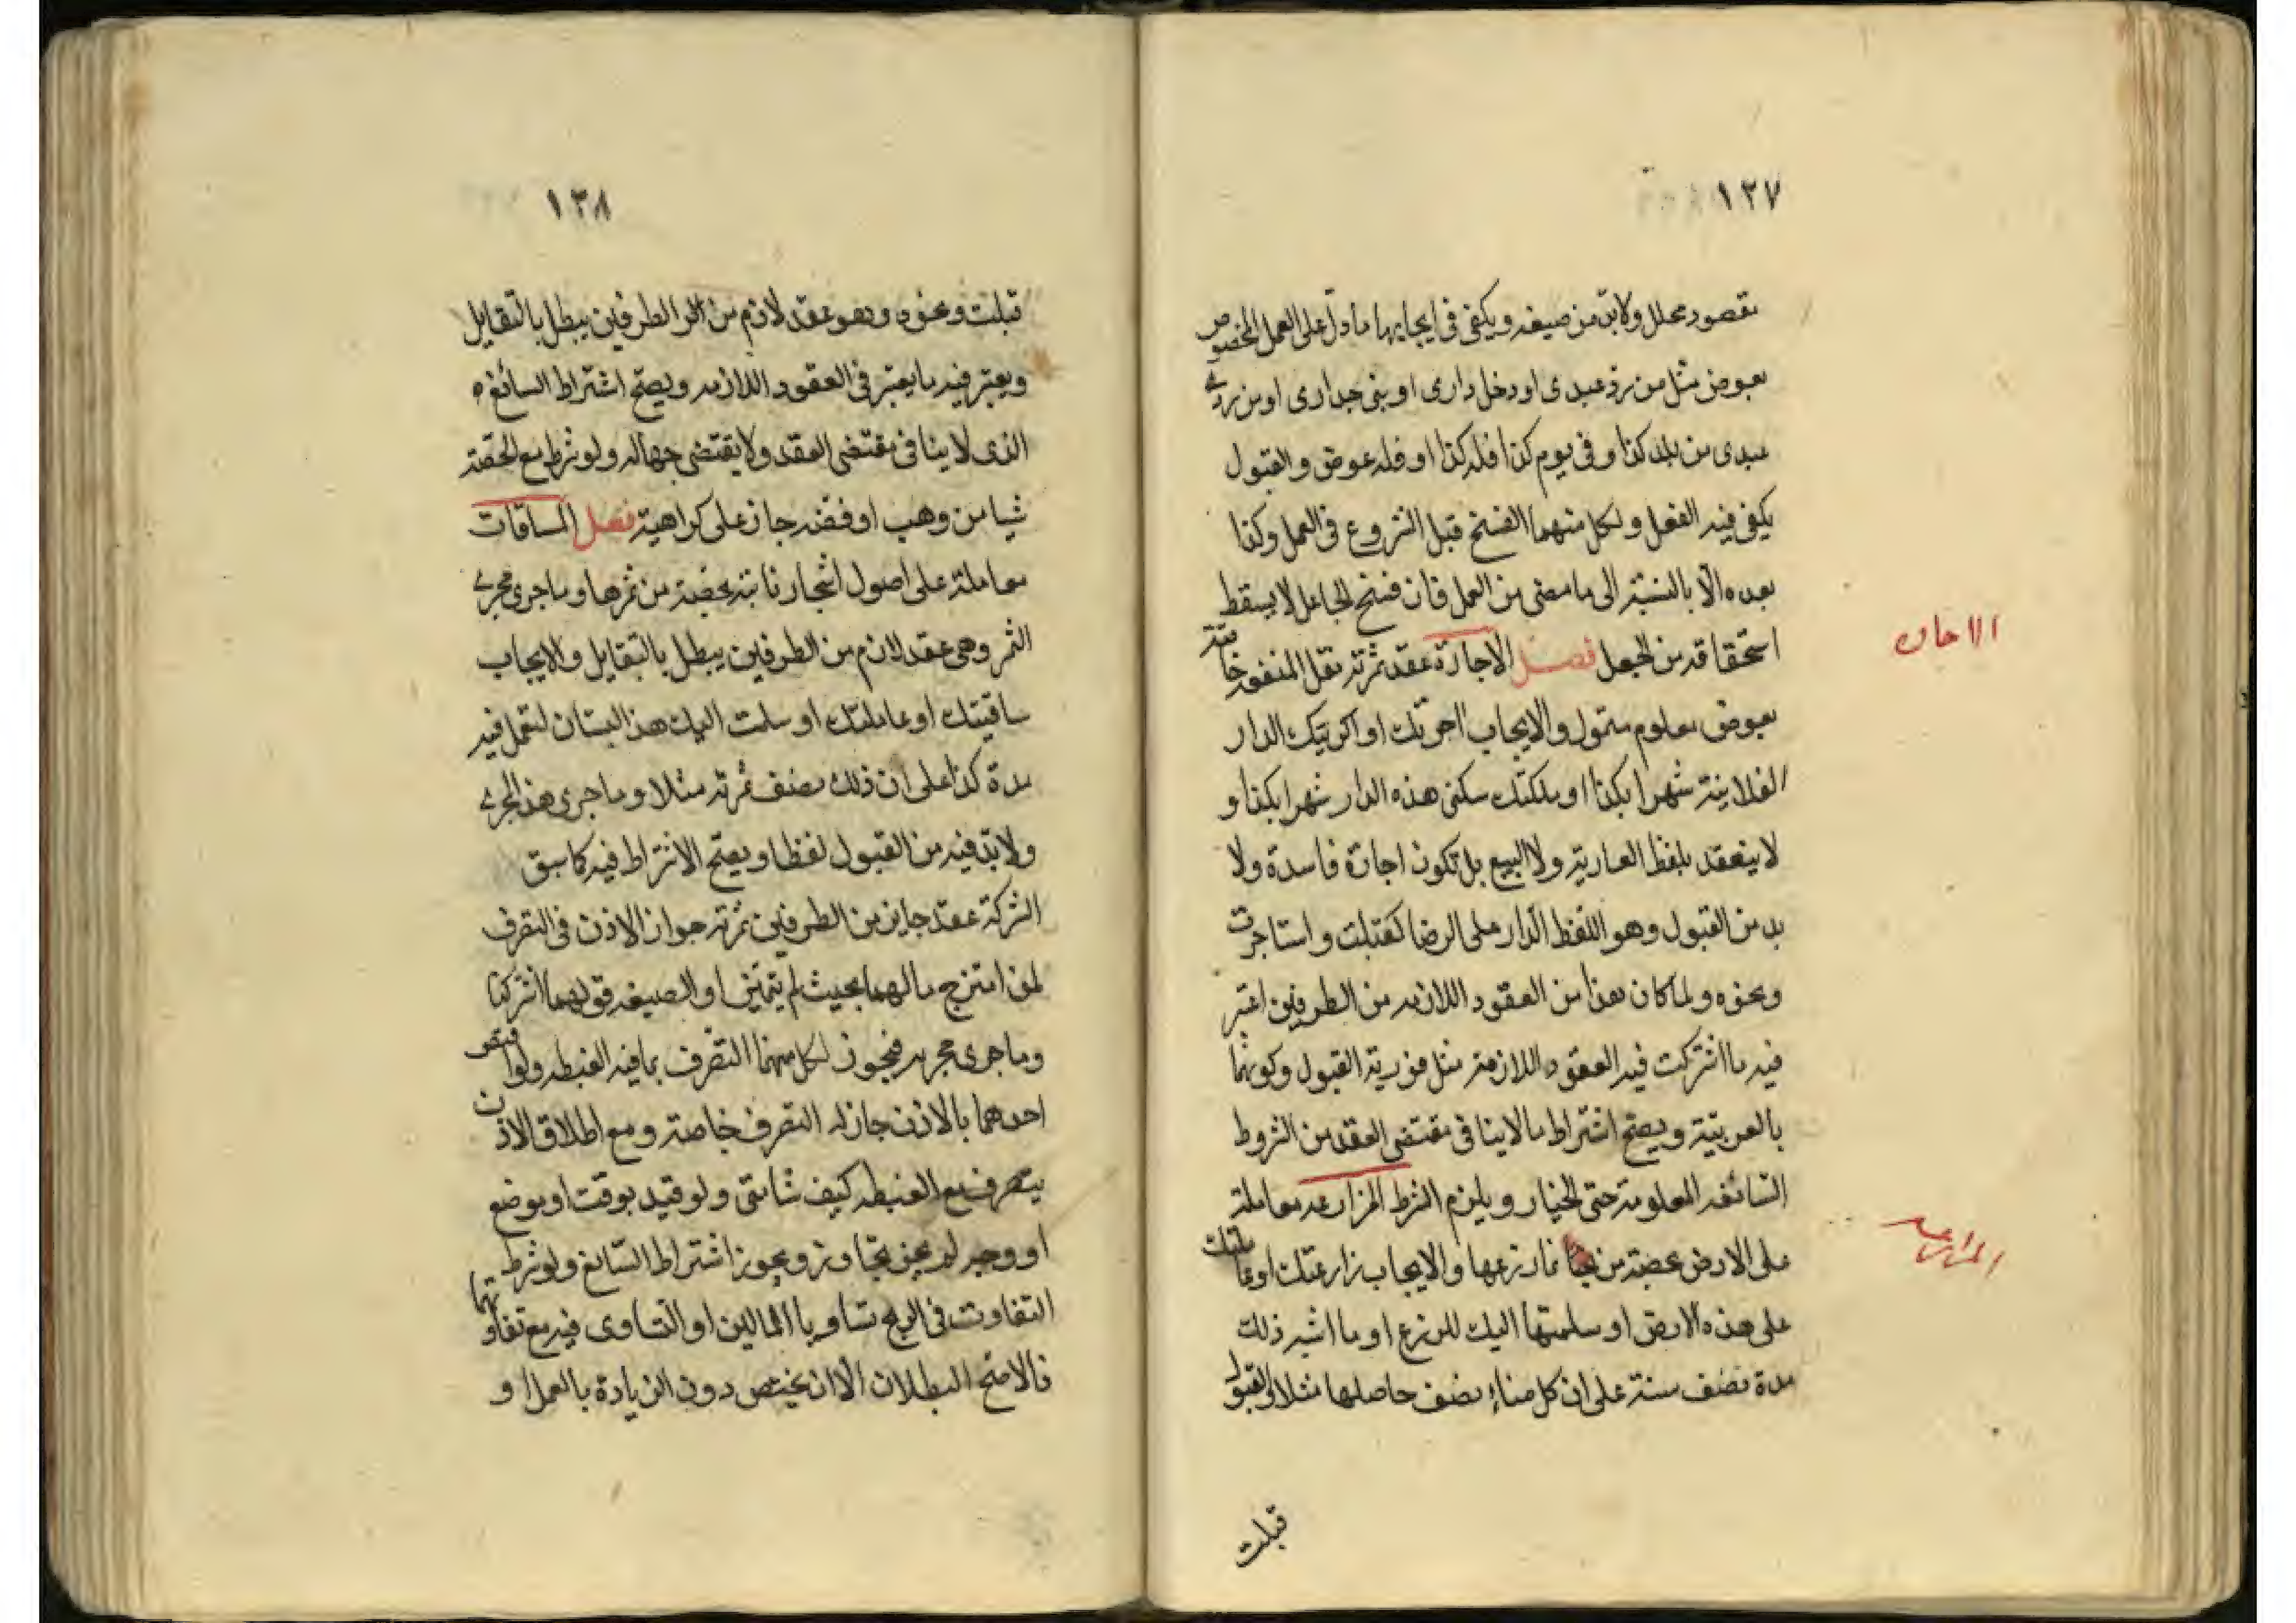 ١٢٧
مقصود محلل ولابد من صيغه ويكفى فى ايجابها ما دل على العمل المخصوص
بعوض مثل من رد عبدى او دخل دارى او بنى جدارى او من رد
عبدى من بلد كذا وفى يوم كذا فله كذا او فله عوض والقبول
يكفى فيه الفعل ولكل منهما الفسخ قبل الشروع فى العمل وكذا
بعده الا بالنسبة الى ما مضى من العمل فان فسخ الجاعل لا يسقط
استحقاقه من الجعل فصل الاجارة عقد ثمرته نقل المنفعه خاصة
بعوض معلوم متمول والايجاب اجرتك او اكريتك الدار
الفلانية شهرا بكذا او ملكتك سكنى هذه الدار شهرا بكذا و
لا ينعقد بلفظ العارية ولا البيع بل تكون اجارة فاسدة ولا
بد من القبول وهو اللفظ الدال على الرضا كقبلت واستاجرت
ونحوه ولما كان هذا من العقود اللازمه من الطرفين اعتبر
فيه ما اشتركت فيه العقود اللازمة مثل فورية القبول وكونهما
بالعربية ويصح اشتراط ما لا ينافى مقتضى العقد من الشروط
السائغه المعلومة حتى الخيار ويلزم الشرط المزارعه معاملة
على الارض بحصة من نماء زرعها والايجاب زارعتك او عاملتك
على هذه الارض او سلمتها اليك للزرع او ما اشبه ذلك
مدة نصف سنة على ان كل منا نصف حاصلها مثلا والقبول
قبلت
الاجاره
المزارعه
١٢٨
قبلت ونحوه وهو عقد لازم من الطرفين يبطل بالتقايل
ويعتبر فيه ما يعتبر فى العقود اللازمه ويصح اشتراط السائغ
الذى لا ينافى مقتضى العقد ولا يقتضى جهاله ولو شرط مع الحصة
شيا من وهب او فضه جاز على كراهية فصل المساقات
معاملة على اصول اشجار نابته بحصة من ثمرها وما جرى مجرى
الثمر وهى عقد لازم من الطرفين يبطل بالتقايل والايجاب
ساقيتك او عاملتك او سلمت اليك هذا البستان لتعمل فيه
مدة كذا على ان ذلك نصف ثمرته مثلا وما جرى هذا المجرى
ولابد فيه من القبول لفظا ويصح الاشتراط فيه كما سبق
الشركة عقد جايز من الطرفين ثمرته جواز الاذن فى التصرف
لمن امتزج مالهما بحيث لم يتميز او الصيغه قولهما اشتركنا
وما جرى مجريه فيجوز لكل منهما التصرف بما فيه الغبطه ولو اختص
احدهما بالاذن جاز له التصرف خاصة ومع اطلاق الاذن
يتصرف مع الغبطه كيف شا متى ولو قيد بوقت او موضع
او وجه لم يجز تجاوزه ويجوز اشتراط السائغ ولو شرط
التفاوت فى الربح تساويا المالين او التساوى فيه مع تفاوتهما
فالاصح البطلان الا ان يختص دون الزيادة بالعمل او